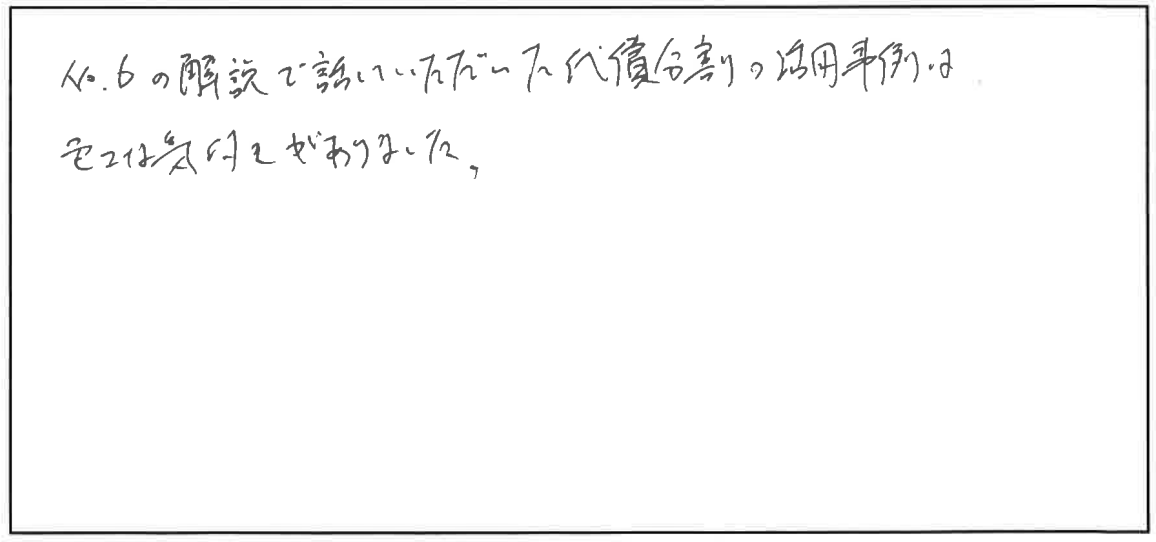 No.6の解説で話していただいた代償分割の活用事例は
気付きがありました。